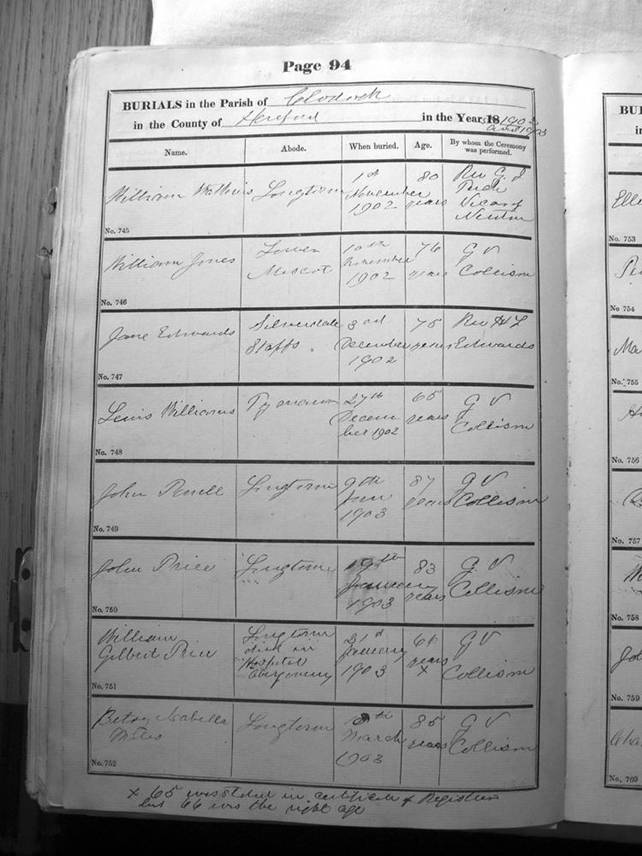 Page 94
BURIALS in the Parish of Clodock
in the County of Hereford in the Year 18 1902
and 1903
Name. Abode. When buried. Age. By whom the Ceremony was performed.
William Watkins Longtown 1st November 1902 80 years Rev G Vicar of Newton
No. 745
William Jones Lower 10th November 1902 76 years G V Collison
No. 746
Jane Edwards Silverdale Staffs. 3rd December 1902 75 years Rev Edwards
No. 747
Lewis Williams 27th December 1902 65 years G V Collison
No. 748
John Longtown 9th 1903 87 years G V Collison
No. 749
John Price Longtown January 1903 83 years G V Collison
No. 750
William Gilbert Price Longtown died in Hospital Abergavenny 21st January 1903 years x G V Collison
No. 751
Betsy Isabella Longtown March 1903 85 years G V Collison
No. 752
x 65 was stated in certificate of Registrar
but 66 was the right age
BU
in
Elle
No. 753
No. 754
Ma
No. 755
No. 756
No. 757
No. 758
No. 759
No. 760